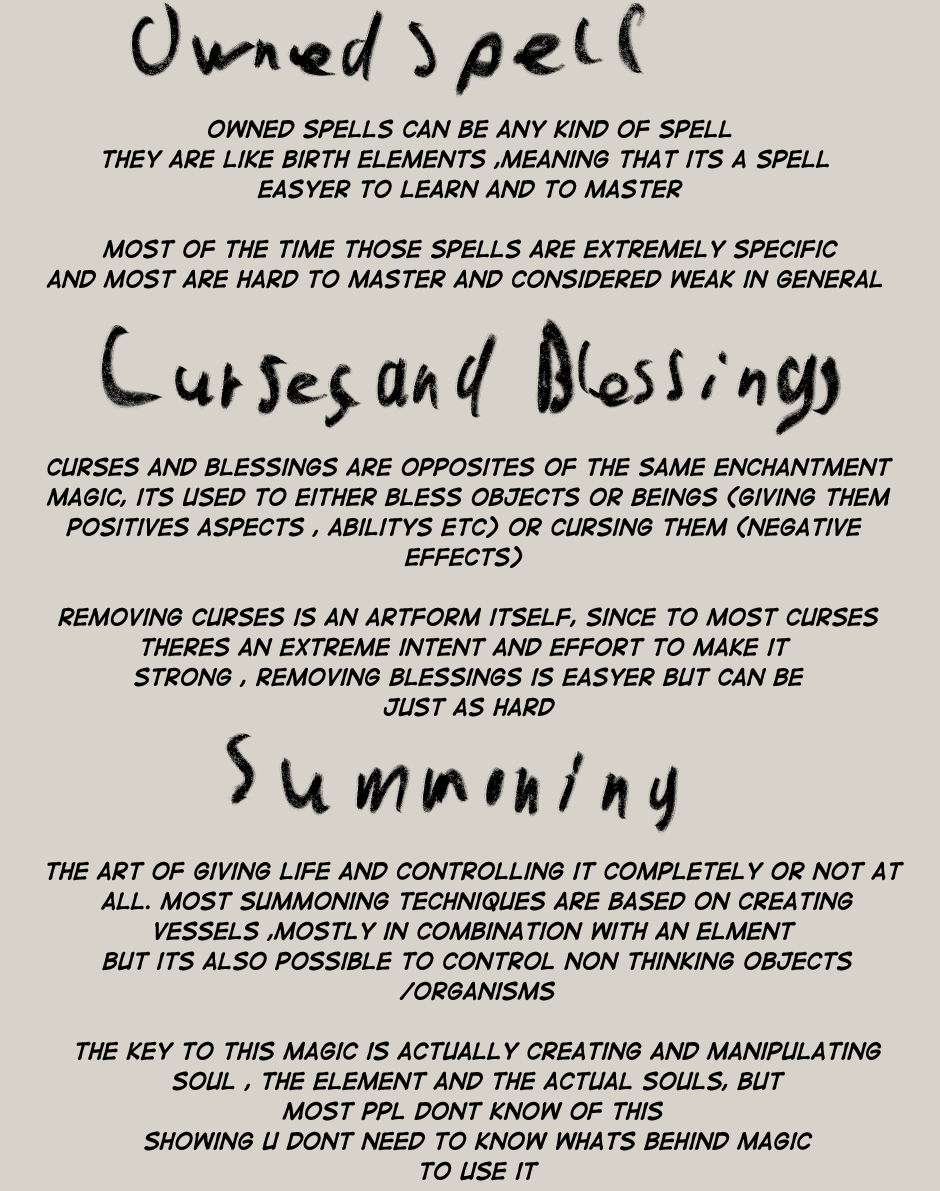 Owned Spell
OWNED SPELLS CAN BE ANY KIND OF SPELL
THEY ARE LIKE BIRTH ELEMENTS ,MEANING THAT ITS A SPELL
EASYER TO LEARN AND TO MASTER
MOST OF THE TIME THOSE SPELLS ARE EXTREMELY SPECIFIC
AND MOST ARE HARD TO MASTER AND CONSIDERED WEAK IN GENERAL
Curses and Blessings
CURSES AND BLESSINGS ARE OPPOSITES OF THE SAME ENCHANTMENT
MAGIC, ITS USED TO EITHER BLESS OBJECTS OR BEINGS (GIVING THEM
POSITIVES ASPECTS , ABILITYS ETC) OR CURSING THEM (NEGATIVE
EFFECTS)
REMOVING CURSES IS AN ARTFORM ITSELF, SINCE TO MOST CURSES
THERES AN EXTREME INTENT AND EFFORT TO MAKE IT
STRONG , REMOVING BLESSINGS IS EASYER BUT CAN BE
JUST AS HARD
Summoning
THE ART OF GIVING LIFE AND CONTROLLING IT COMPLETELY OR NOT AT
ALL. MOST SUMMONING TECHNIQUES ARE BASED ON CREATING
VESSELS ,MOSTLY IN COMBINATION WITH AN ELMENT
BUT ITS ALSO POSSIBLE TO CONTROL NON THINKING OBJECTS
/ORGANISMS
THE KEY TO THIS MAGIC IS ACTUALLY CREATING AND MANIPULATING
SOUL , THE ELEMENT AND THE ACTUAL SOULS, BUT
MOST PPL DONT KNOW OF THIS
SHOWING U DONT NEED TO KNOW WHATS BEHIND MAGIC
TO USE IT